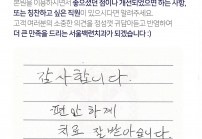 본원을 이용하시면서 좋으셨던 점이나 개선되었으면 하는 사항,
또는 칭찬하고 싶은 직원이 있으시다면 말려주세요.
고객 여러분의 소중한 의견을 정성껏 귀담아듣고 반영하여
더 큰 만족을 드리는 서울백련치과가 되겠습니다 :)
감사합니다.
편안하게
치료 잘 받아요니다.